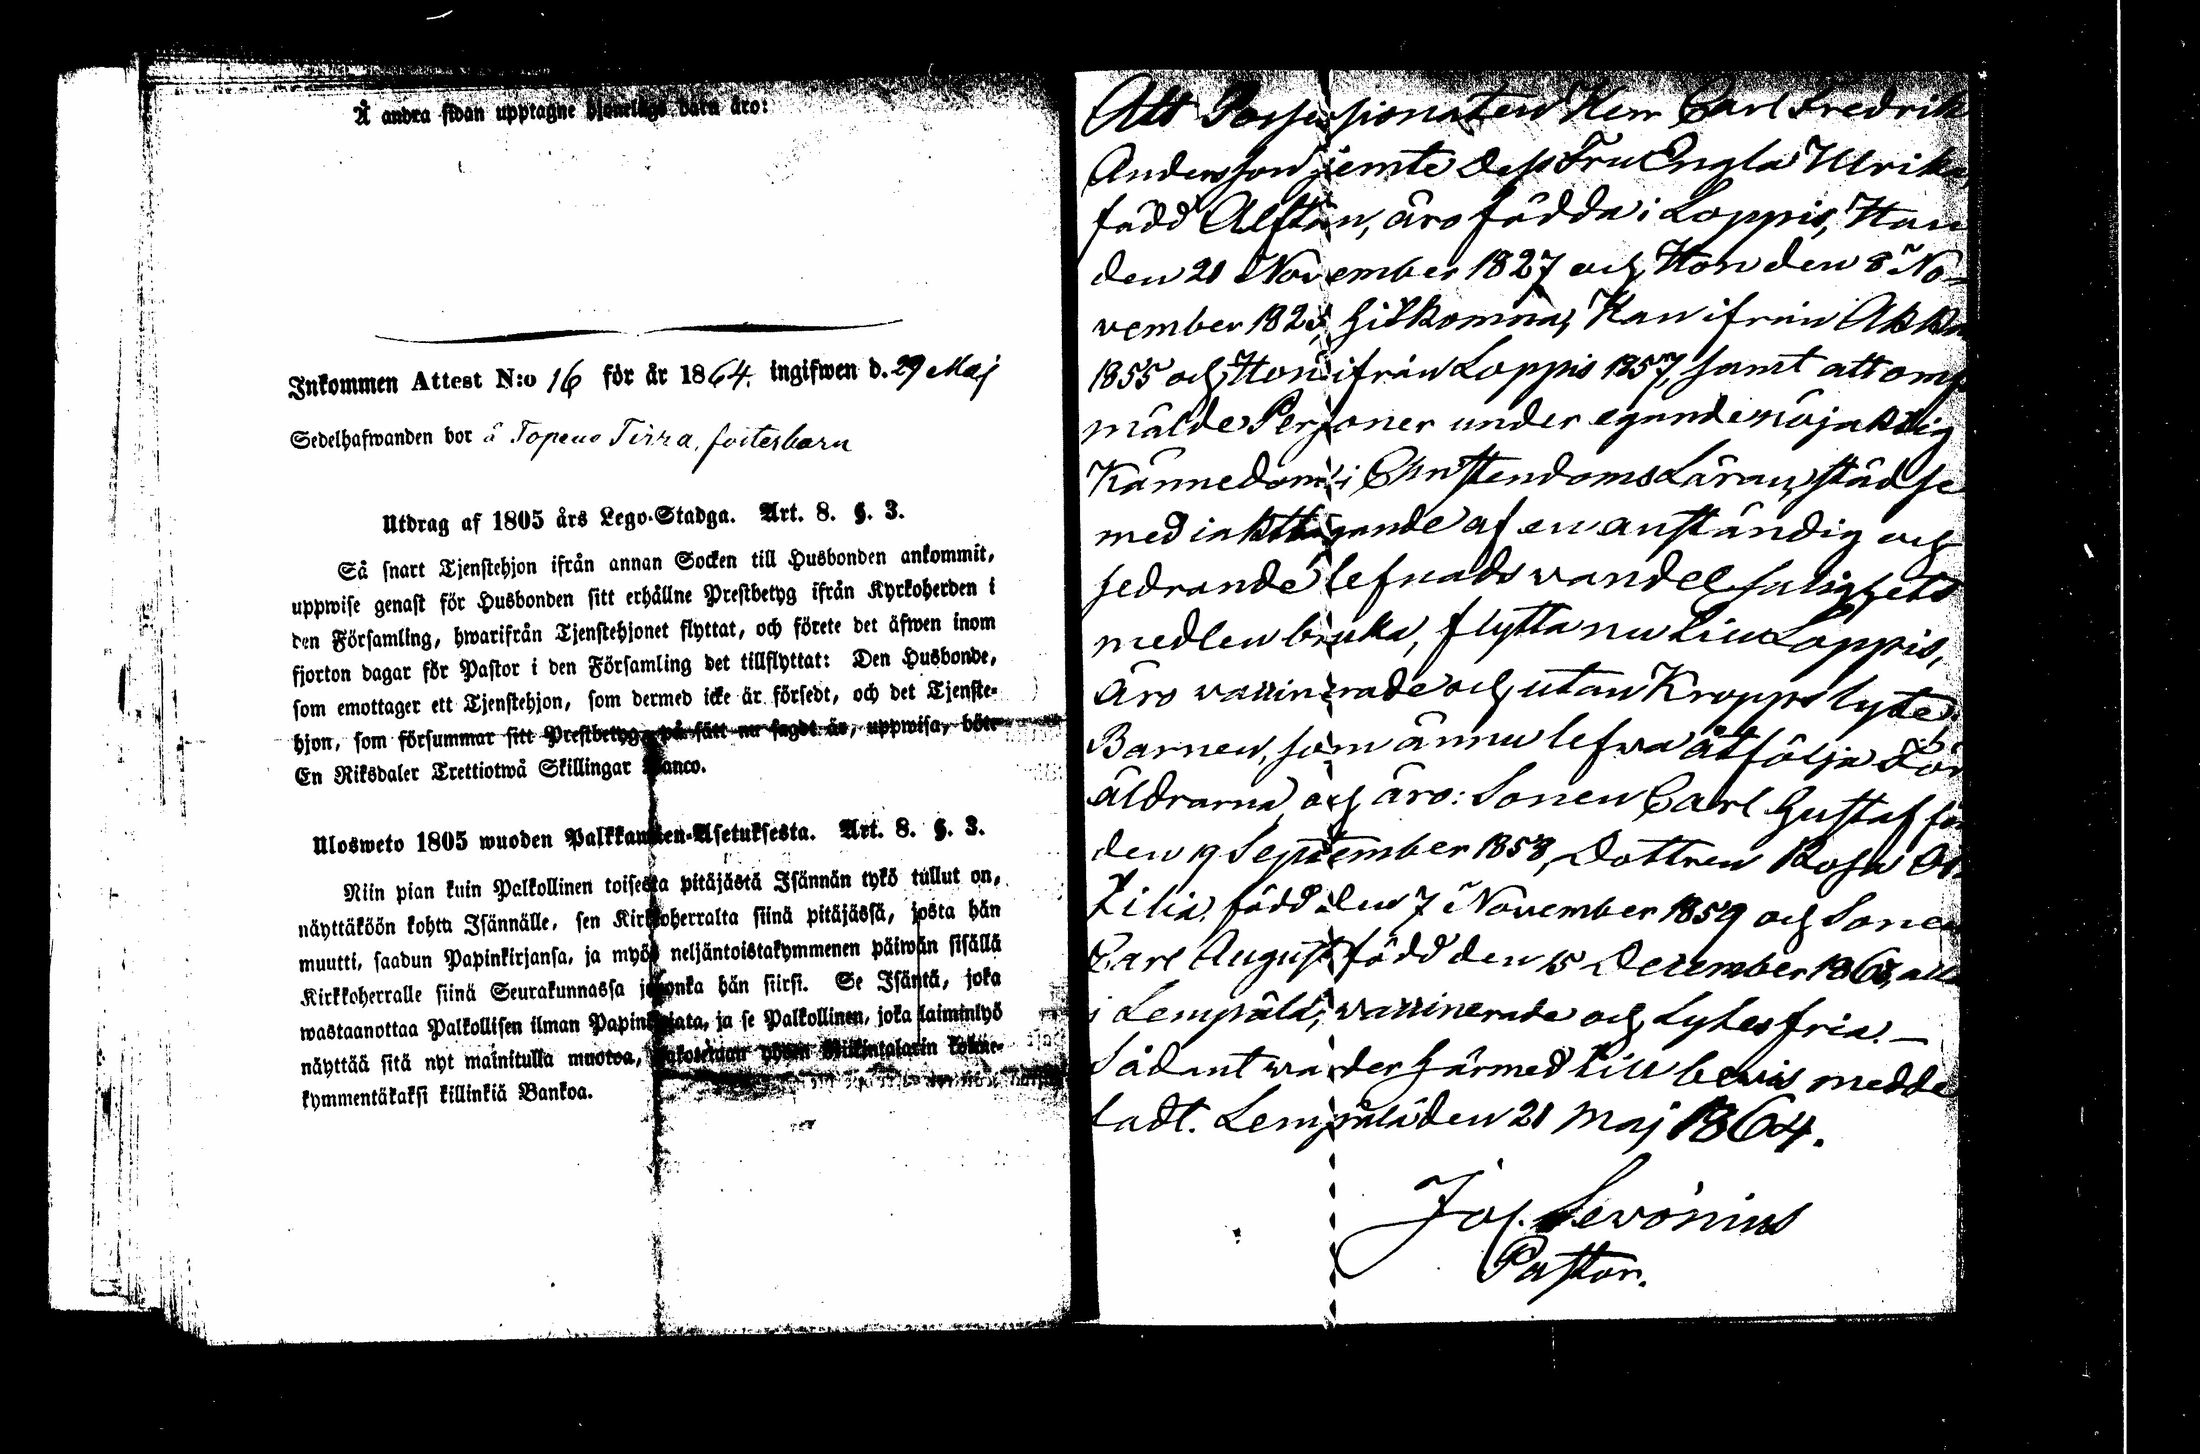 Å andra sidan upptagne hjonelags barn äro:
Inkommen Attest N:o 16 för år 1864. ingifwen d. 29 Maj
Sedelhafwanden bor å Topeno Tirra, fosterbarn
Utdrag af 1805 års Lego-Stadga. Art. 8. §. 3.
Så snart Tjenstehjon ifrån annan Socken till Husbonden ankommit,
uppwise genast för Husbonden sitt erhållne Prestbetyg ifrån Kyrkoherden i
den Församling, hwarifrån Tjenstehjonet flyttat, och förete det äfwen inom
fjorton dagar för Pastor i den Församling det tillflyttat: Den Husbonde,
som emottager ett Tjenstehjon, som dermed icke är försedt, och det Tjenste-
hjon, som försummar sitt Prestbetyg, på sätt nu sagdt är, uppwisa, böte
En Riksdaler Trettiotwå Skillingar Banco.
Ulosweto 1805 wuoden Palkkawäen-Asetuksesta. Art. 8. §. 3.
Niin pian kuin Palkollinen toisesta pitäjästä Isännän tykö tullut on,
näyttäköön kohta Isännälle, sen Kirkkoherralta siinä pitäjässä, josta hän
muutti, saadun Papinkirjansa, ja myös neljäntoistakymmenen päiwän sisällä
Kirkkoherralle siinä Seurakunnassa johonka hän siirsi. Se Isäntä, joka
wastaanottaa Palkollisen ilman Papinkirjata, ja se Palkollinen, joka laiminlyö
näyttää sitä nyt mainitulla muotoa, sakoitetaan yhden Riikintalarin kolme-
kymmentäkaksi killinkiä Bankoa.
Att Possessionaten Herr Carl Fredrik
Andersson jemte dess Fru Engla Ulrika,
född Alftan, äro födda i Loppis, Han
den 21 November 1827 och Hon den 8 No-
vember 1825, hitkomna, Han ifrån Akka
1855 och Hon ifrån Loppis 1857, samt att omf
mälde Personer under egande nöjaktig
Kännedom i Christendoms Läran, städse
med iakttagande af en anständig och
sedrande lefnadswandel salighets
medlen bruka, flytta nu till Loppis,
Äro vaccinerade och utan Kropps lyte.
Barnen, som ännu lefwa åtfölja För
äldrarna, och äro: Sonen Carl Gustaf fö
den 19 September 1858, Dottren Rosa
Zilia, född den 7 November 1859 och Sonen
Carl August född den 15 December 1863, alla
i Lempälä, vaccinerade och Lytes fria. —
Sådant warder härmed till bewis medde
ladt. Lempälä den 21 Maj 1864.
Jos. Sevonius
Pastor.